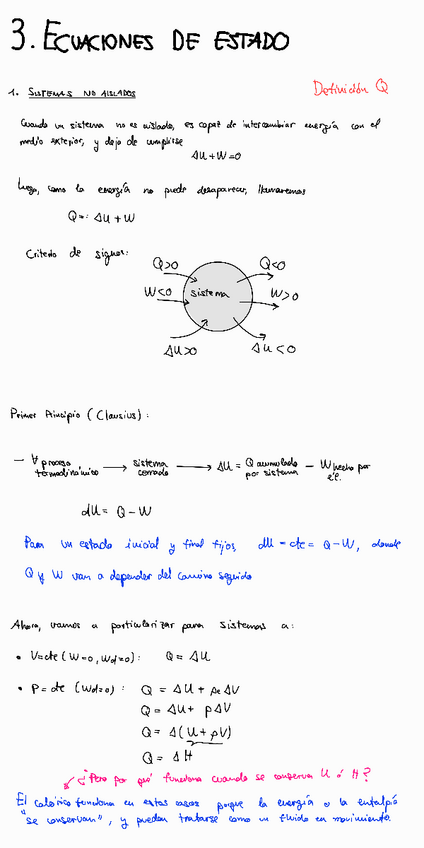 3. ECUACIONES DE ESTADO
Definición Q
1. SISTEMAS NO AISLADOS
Cuando un sistema no es aislado, es capaz de intercambiar energía con el
medio exterior, y deja de cumplirse
ΔU+W=0
Luego, como la energía no puede desaparecer, llamaremos
Q=: ΔU+W
Criterio de signos:
Q>0
Q<0
W<0
sistema
W>0
ΔU>0
ΔU<0
Primer Principio (Clausius):
— ∀ proceso termodinámico → sistema cerrado → ΔU = Q acumulado por sistema — W hecho por él.
dU = Q - W
Para un estado inicial y final fijos, dU = cte = Q-W, donde
Q y W van a depender del camino seguido
Ahora, vamos a particularizar para sistemas a:
• V=cte (W=0, Wd=0): Q = ΔU
• P=cte (Wd=0): Q = ΔU + pe ΔV
Q = ΔU + pΔV
Q = Δ(U + pV)
Q = ΔH
¿Pero por qué funciona cuando se conserva U ó H?
El calórico funciona en estos casos porque la energía o la entalpía
"se conservan", y pueden tratarse como un fluido en movimiento